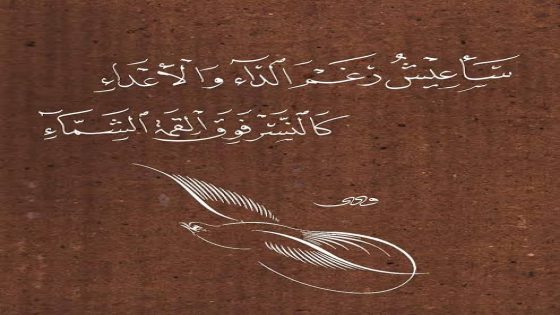 سَأَعِيْشُ رَغْمَ الدَّاءِ وَالْأَعْدَاءِ
كَالنَّسْرِ فَوْقَ الْقِمَّةِ الشَّمَّاءِ